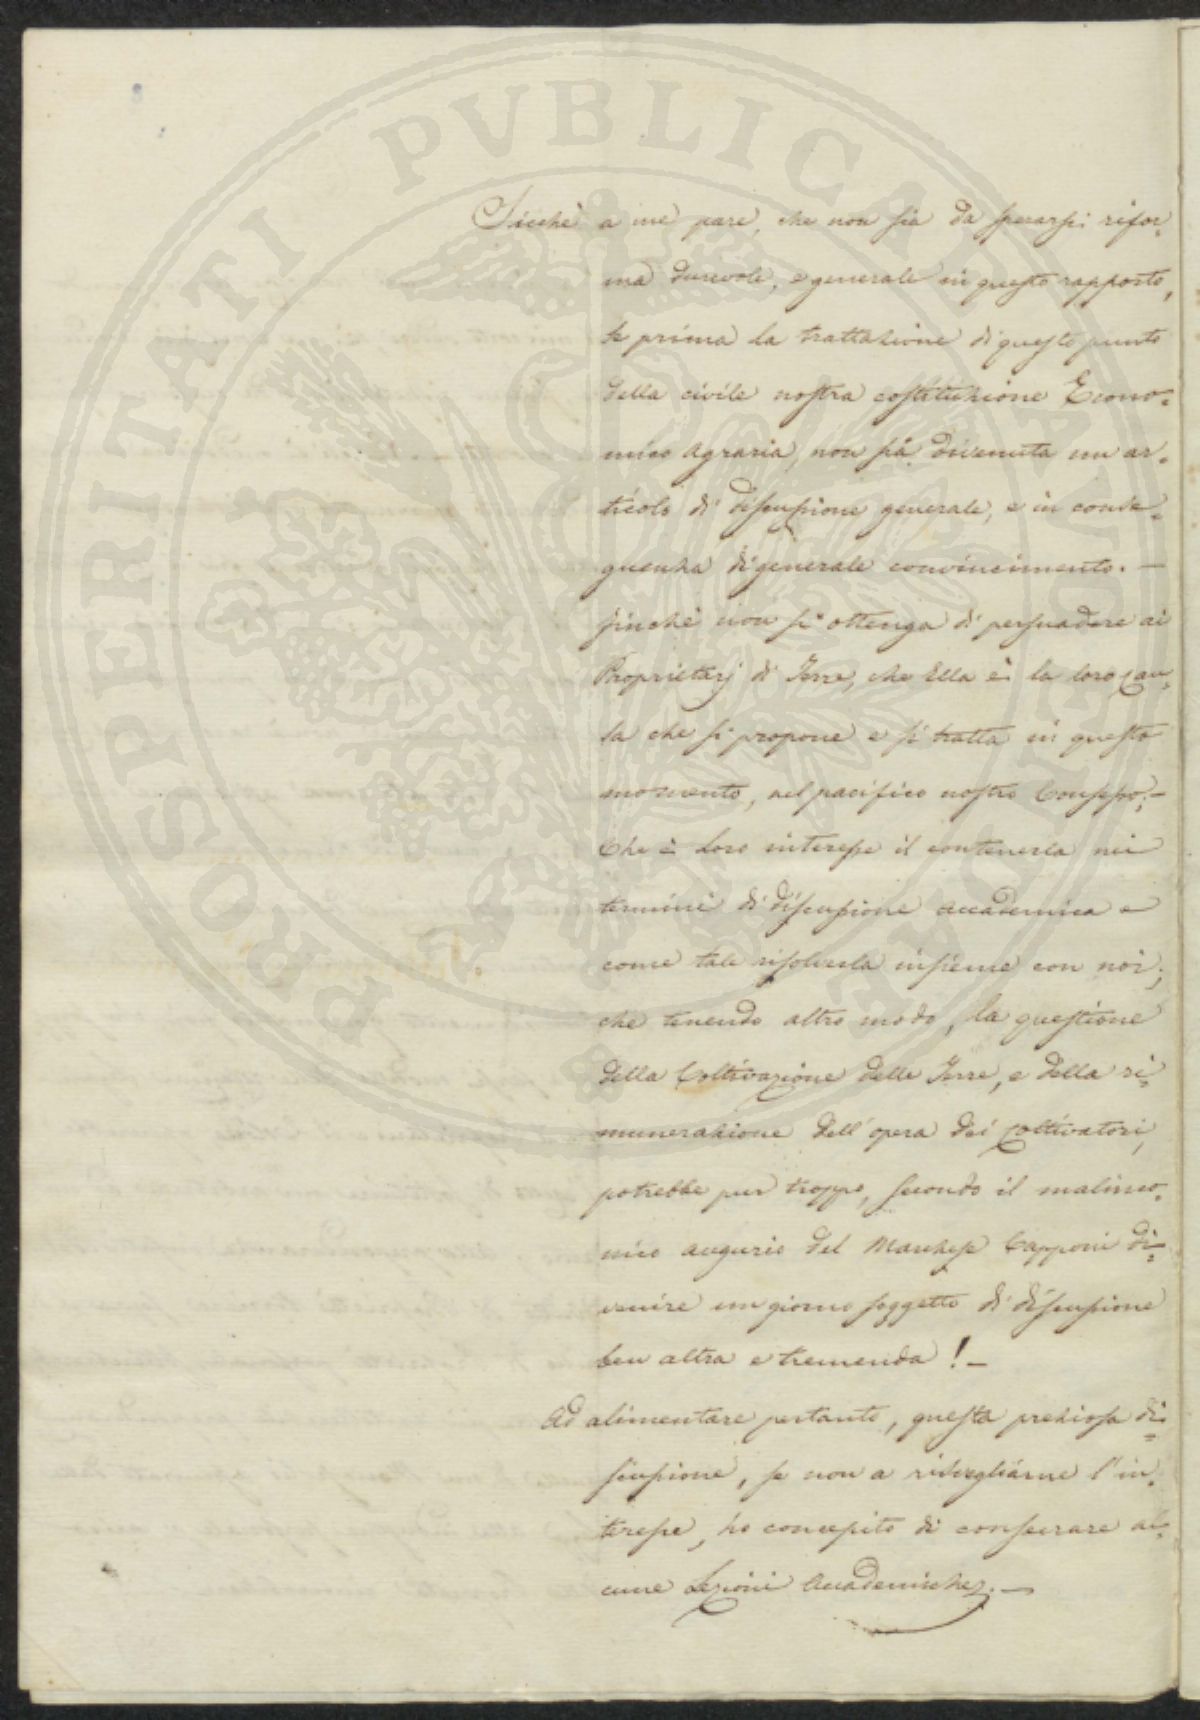 PROSPERITATI PVBLICAE AVGENDAE
Sicchè a me pare, che non sia da sperarsi rifor-
ma durevole, e generale in questo rapporto,
se prima la trattazione di questo punto
della civile nostra costituzione Econo-
mico agraria, non sià divenuta un ar-
ticolo di discussione generale, e in conse-
guenza di generale convincimento. —
finchè non si ottenga di persuadere ai
Proprietarj di Terre, che Ella è la loro cau-
sa che si propone e si tratta in questo
momento, nel pacifico nostro Consesso; —
Che è Loro interesse il contenerla nei
termini di discussione accademica e
come tale risolverla insieme con noi;
che tenendo altro modo, la questione
della Coltivazione delle Terre, e della ri-
munerazione dell'opera dei Coltivatori,
potrebbe pur troppo, secondo il malinco-
nico augurio del Marchese Capponi di-
venire un giorno soggetto di discussione
ben altra e tremenda! —
Ad alimentare pertanto, questa preziosa di-
scussione, se non a risvegliarne l'in-
teresse, ho concepito di consecrare al-
cune Lezioni Accademiche. —